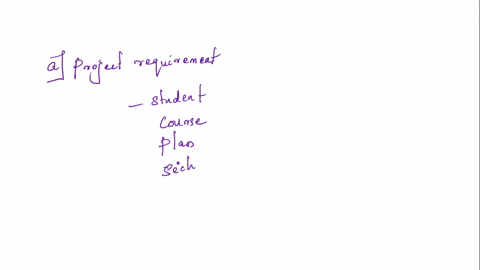 a] Project requirement
– Student
Course
Plan